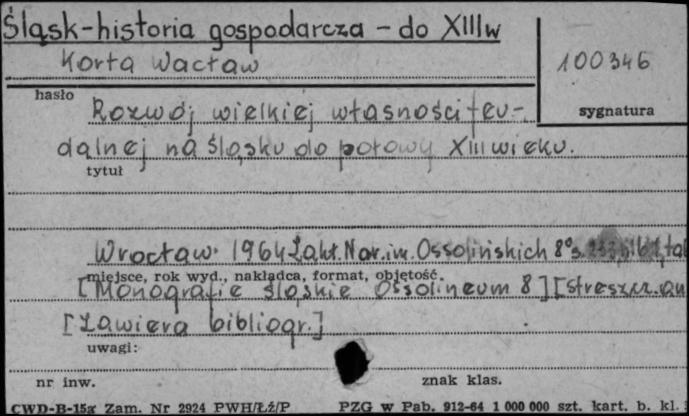 Śląsk-historia gospodarcza - do XIIIw
Korta Wacław
100346
hasło
sygnatura
Rozwój wielkiej własności feu-
dalnej na Śląsku do połowy XIII wieku.
tytuł
Wrocław 1964 Zakł. Nar. im. Ossolińskich 8° s.
miejsce, rok wyd., nakładca, format, objętość.
[Monografie śląskie Ossolineum 8] [Streszcz.
[Zawiera bibliogr.]
uwagi:
nr inw.
znak klas.
CWD-B-15g Zam. Nr 2924 PWH/Łź/P
PZG w Pab. 912-64 1 000 000 szt. kart. b. kl.